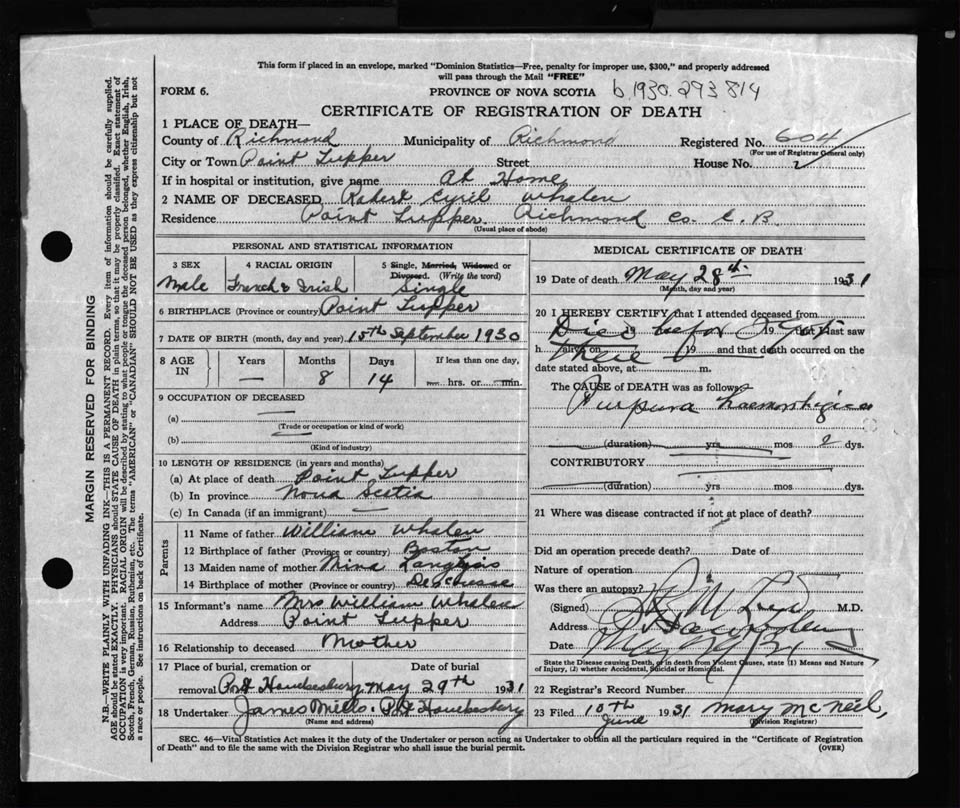 This form if placed in an envelope, marked "Dominion Statistics—Free, penalty for improper use, $300," and properly addressed
will pass through the Mail "FREE"
FORM 6. PROVINCE OF NOVA SCOTIA b.1930.293814
CERTIFICATE OF REGISTRATION OF DEATH
1 PLACE OF DEATH—
County of Richmond Municipality of Richmond Registered No. 604
(For use of Registrar General only)
City or Town Point Tupper Street House No.
If in hospital or institution, give name At Home
2 NAME OF DECEASED Robert Cyril Whalen
Residence Point Tupper. Richmond Co. C. B.
(Usual place of abode)
PERSONAL AND STATISTICAL INFORMATION
3 SEX 4 RACIAL ORIGIN 5 Single, Married, Widowed or Divorced. (Write the word)
Male French & Irish Single
6 BIRTHPLACE (Province or country) Point Tupper
7 DATE OF BIRTH (month, day and year) 15th September 1930
8 AGE IN Years Months Days If less than one day,
— 8 14 hrs. or min.
9 OCCUPATION OF DECEASED
(a)
(Trade or occupation or kind of work)
(b)
(Kind of industry)
10 LENGTH OF RESIDENCE (in years and months)
(a) At place of death Point Tupper
(b) In province Nova Scotia
(c) In Canada (if an immigrant)
Parents
11 Name of father William Whalen
12 Birthplace of father (Province or country) Boston
13 Maiden name of mother Mina Langlois
14 Birthplace of mother (Province or country)
15 Informant's name Mrs William Whalen
Address Point Tupper
16 Relationship to deceased Mother
17 Place of burial, cremation or Date of burial
removal Port Hawkesbury May 29th 1931
18 Undertaker James Mills. Pt Hawkesbury
(Name and address)
MEDICAL CERTIFICATE OF DEATH
19 Date of death May 28th 1931
(Month, day and year)
20 I HEREBY CERTIFY that I attended deceased from
Died before I got 19 that I last saw
h alive on there 19 and that death occurred on the
date stated above, at m.
The CAUSE of DEATH was as follows
Purpura haemorrhagica
(duration) yrs mos 2 dys.
CONTRIBUTORY
(duration) yrs mos dys.
21 Where was disease contracted if not at place of death?
Did an operation precede death? Date of
Nature of operation
Was there an autopsy?
(Signed) M.D.
Address
State the Disease causing Death, or in death from Violent Causes, state (1) Means and Nature
of Injury, (2) whether Accidental, Suicidal or Homicidal.
22 Registrar's Record Number
23 Filed 10th June 1931 Mary McNeil,
(Division Registrar)
SEC. 46—Vital Statistics Act makes it the duty of the Undertaker or person acting as Undertaker to obtain all the particulars required in the "Certificate of Registration
of Death" and to file the same with the Division Registrar who shall issue the burial permit. (OVER)
MARGIN RESERVED FOR BINDING
N.B.—WRITE PLAINLY WITH UNFADING INK—THIS IS A PERMANENT RECORD. Every item of information should be carefully supplied.
AGE should be stated EXACTLY. PHYSICIANS should STATE CAUSE OF DEATH in plain terms, so that it may be properly classified. Exact statement of
OCCUPATION is very important. RACIAL ORIGIN will be described by stating to what people or tongue the deceased person belonged, whether English, Irish,
Scotch, French, German, Russian, Ruthenian, etc. The terms "AMERICAN" or "CANADIAN" SHOULD NOT BE USED as they express citizenship but not
a race or people. See instructions on back of Certificate.